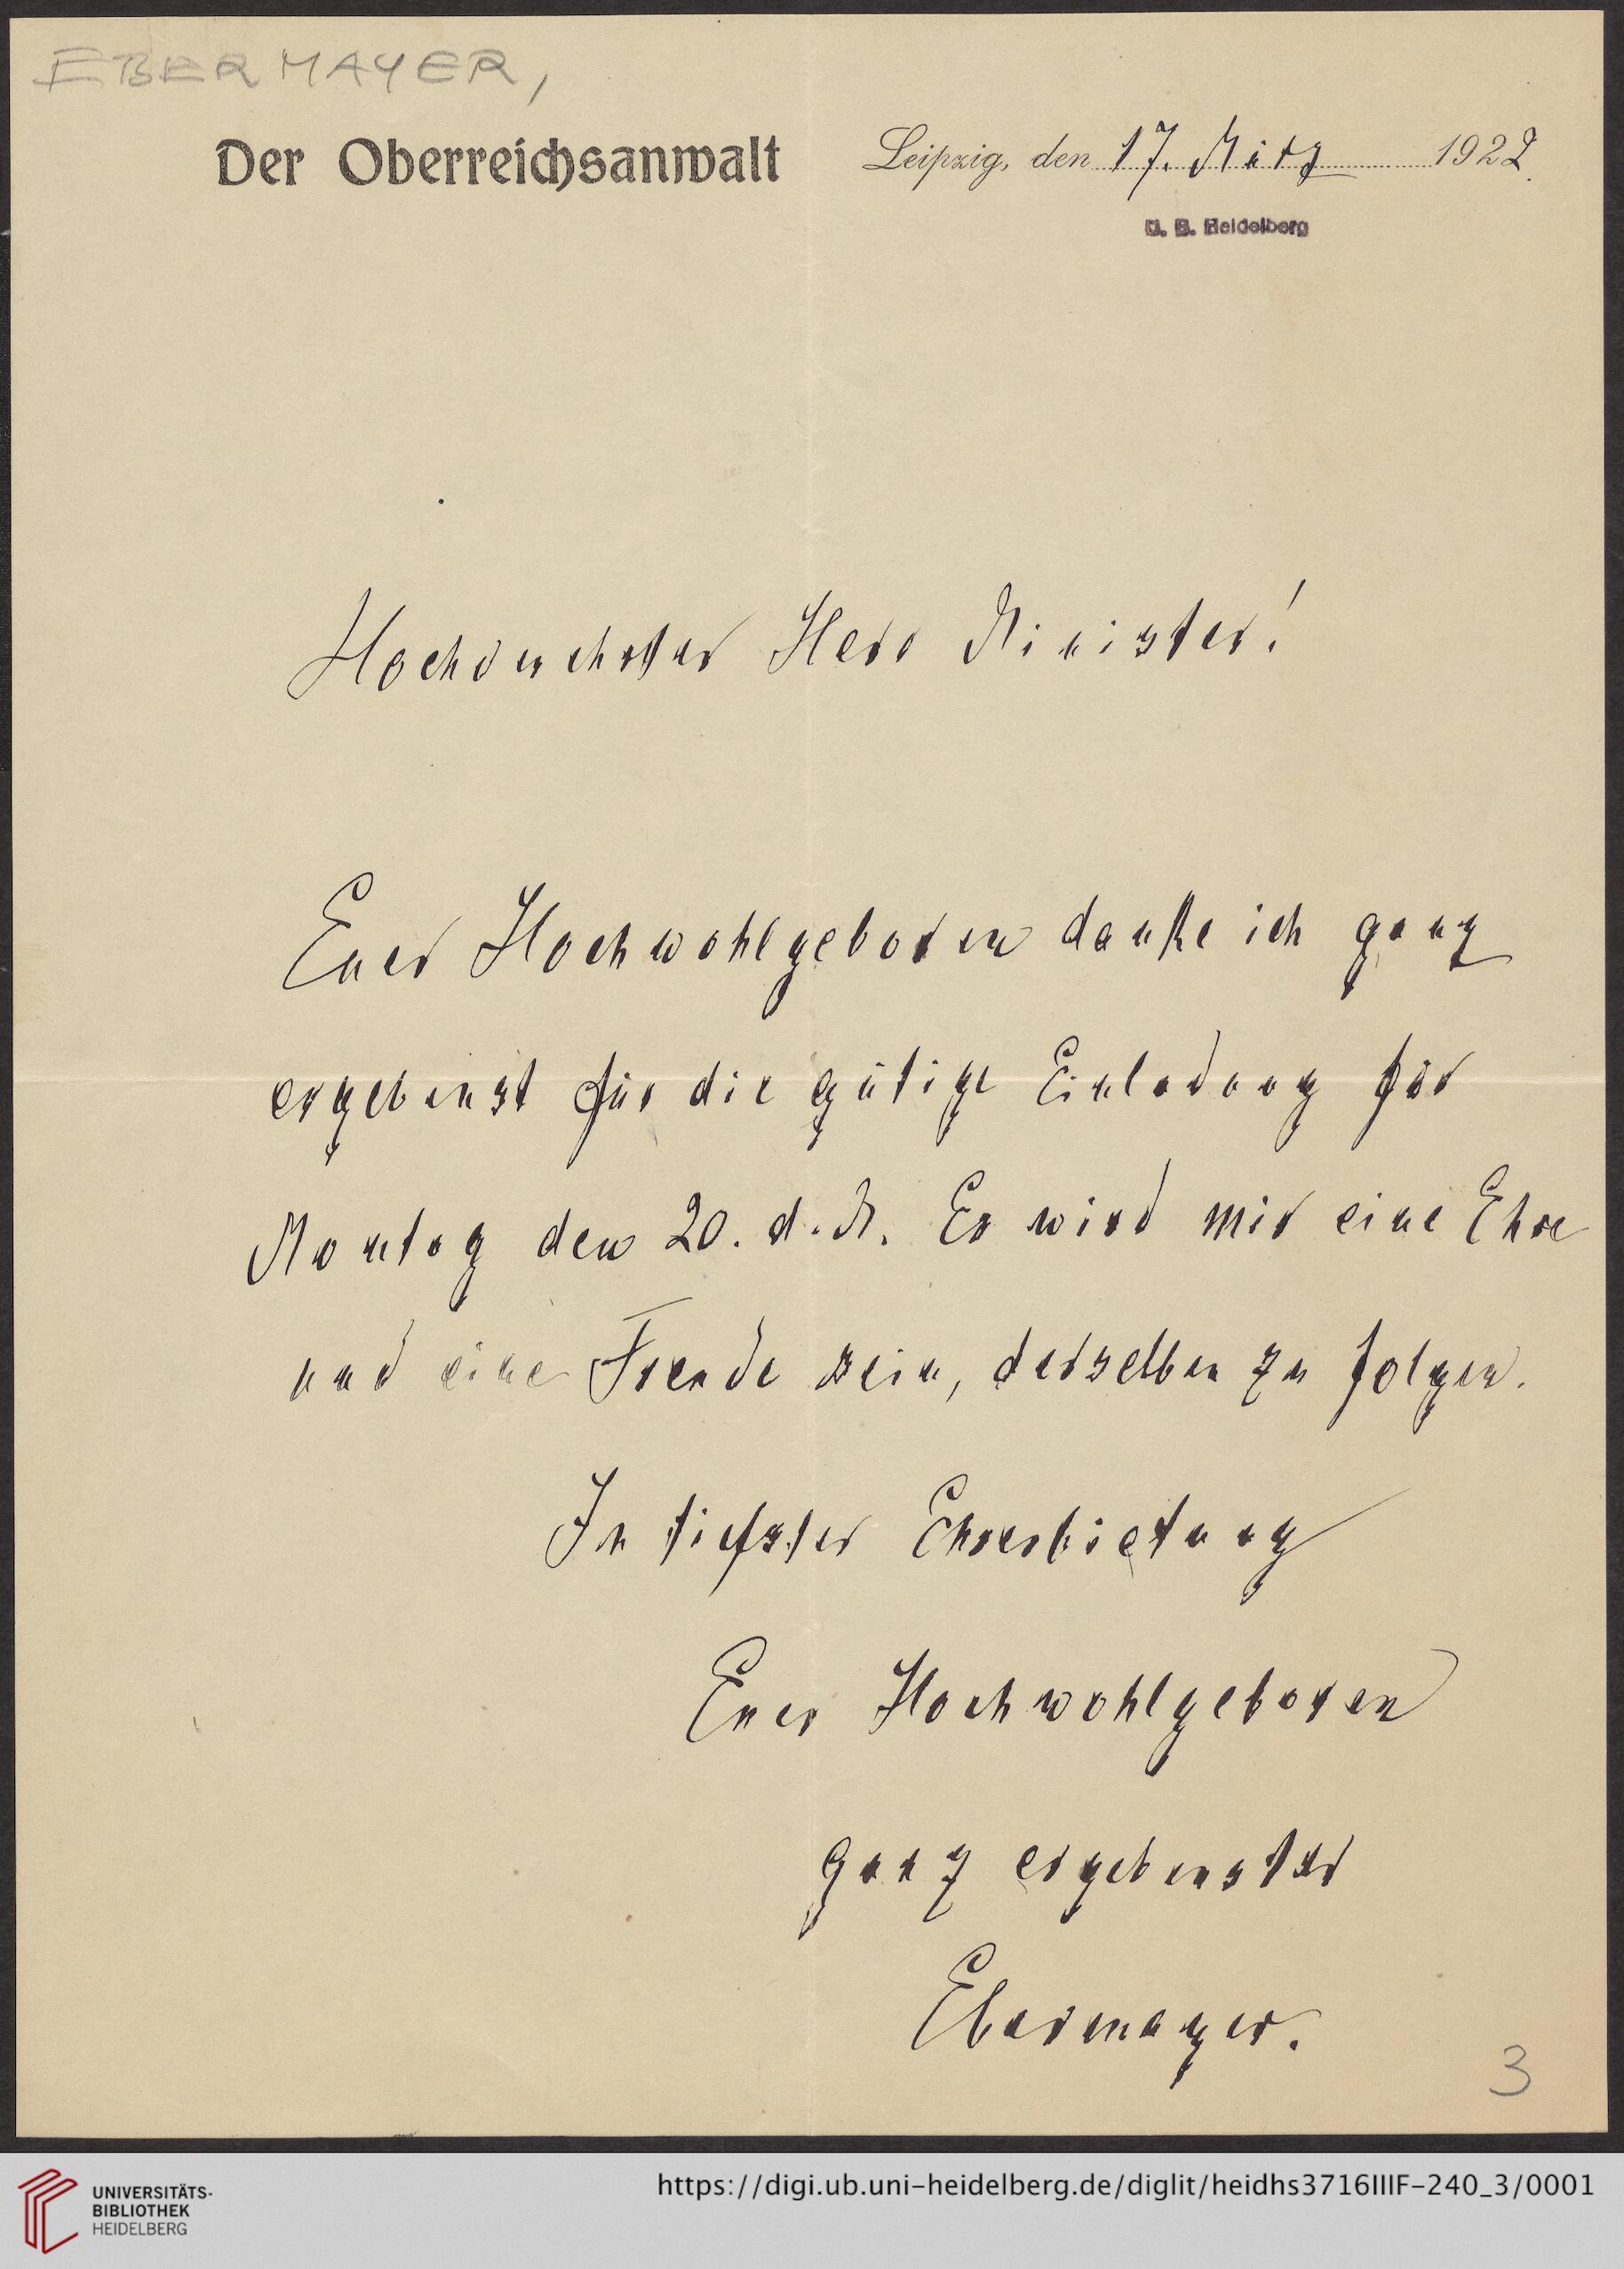 EBERMAYER,
Der Oberreichsanwalt
Leipzig, den 17. März 1922.
U. B. Heidelberg
Hochverehrter Herr Minister!
Euer Hochwohlgeboren danke ich ganz
ergebenst für die gütige Einladung für
Montag den 20. d. M. Es wird mir eine Ehre
und eine Freude sein, derselben zu folgen.
In tiefster Ehrerbietung
Euer Hochwohlgeboren
ganz ergebenster
Ebermayer.
3
UNIVERSITÄTS-
BIBLIOTHEK
HEIDELBERG
https://digi.ub.uni-heidelberg.de/diglit/heidhs3716IIIF-240_3/0001